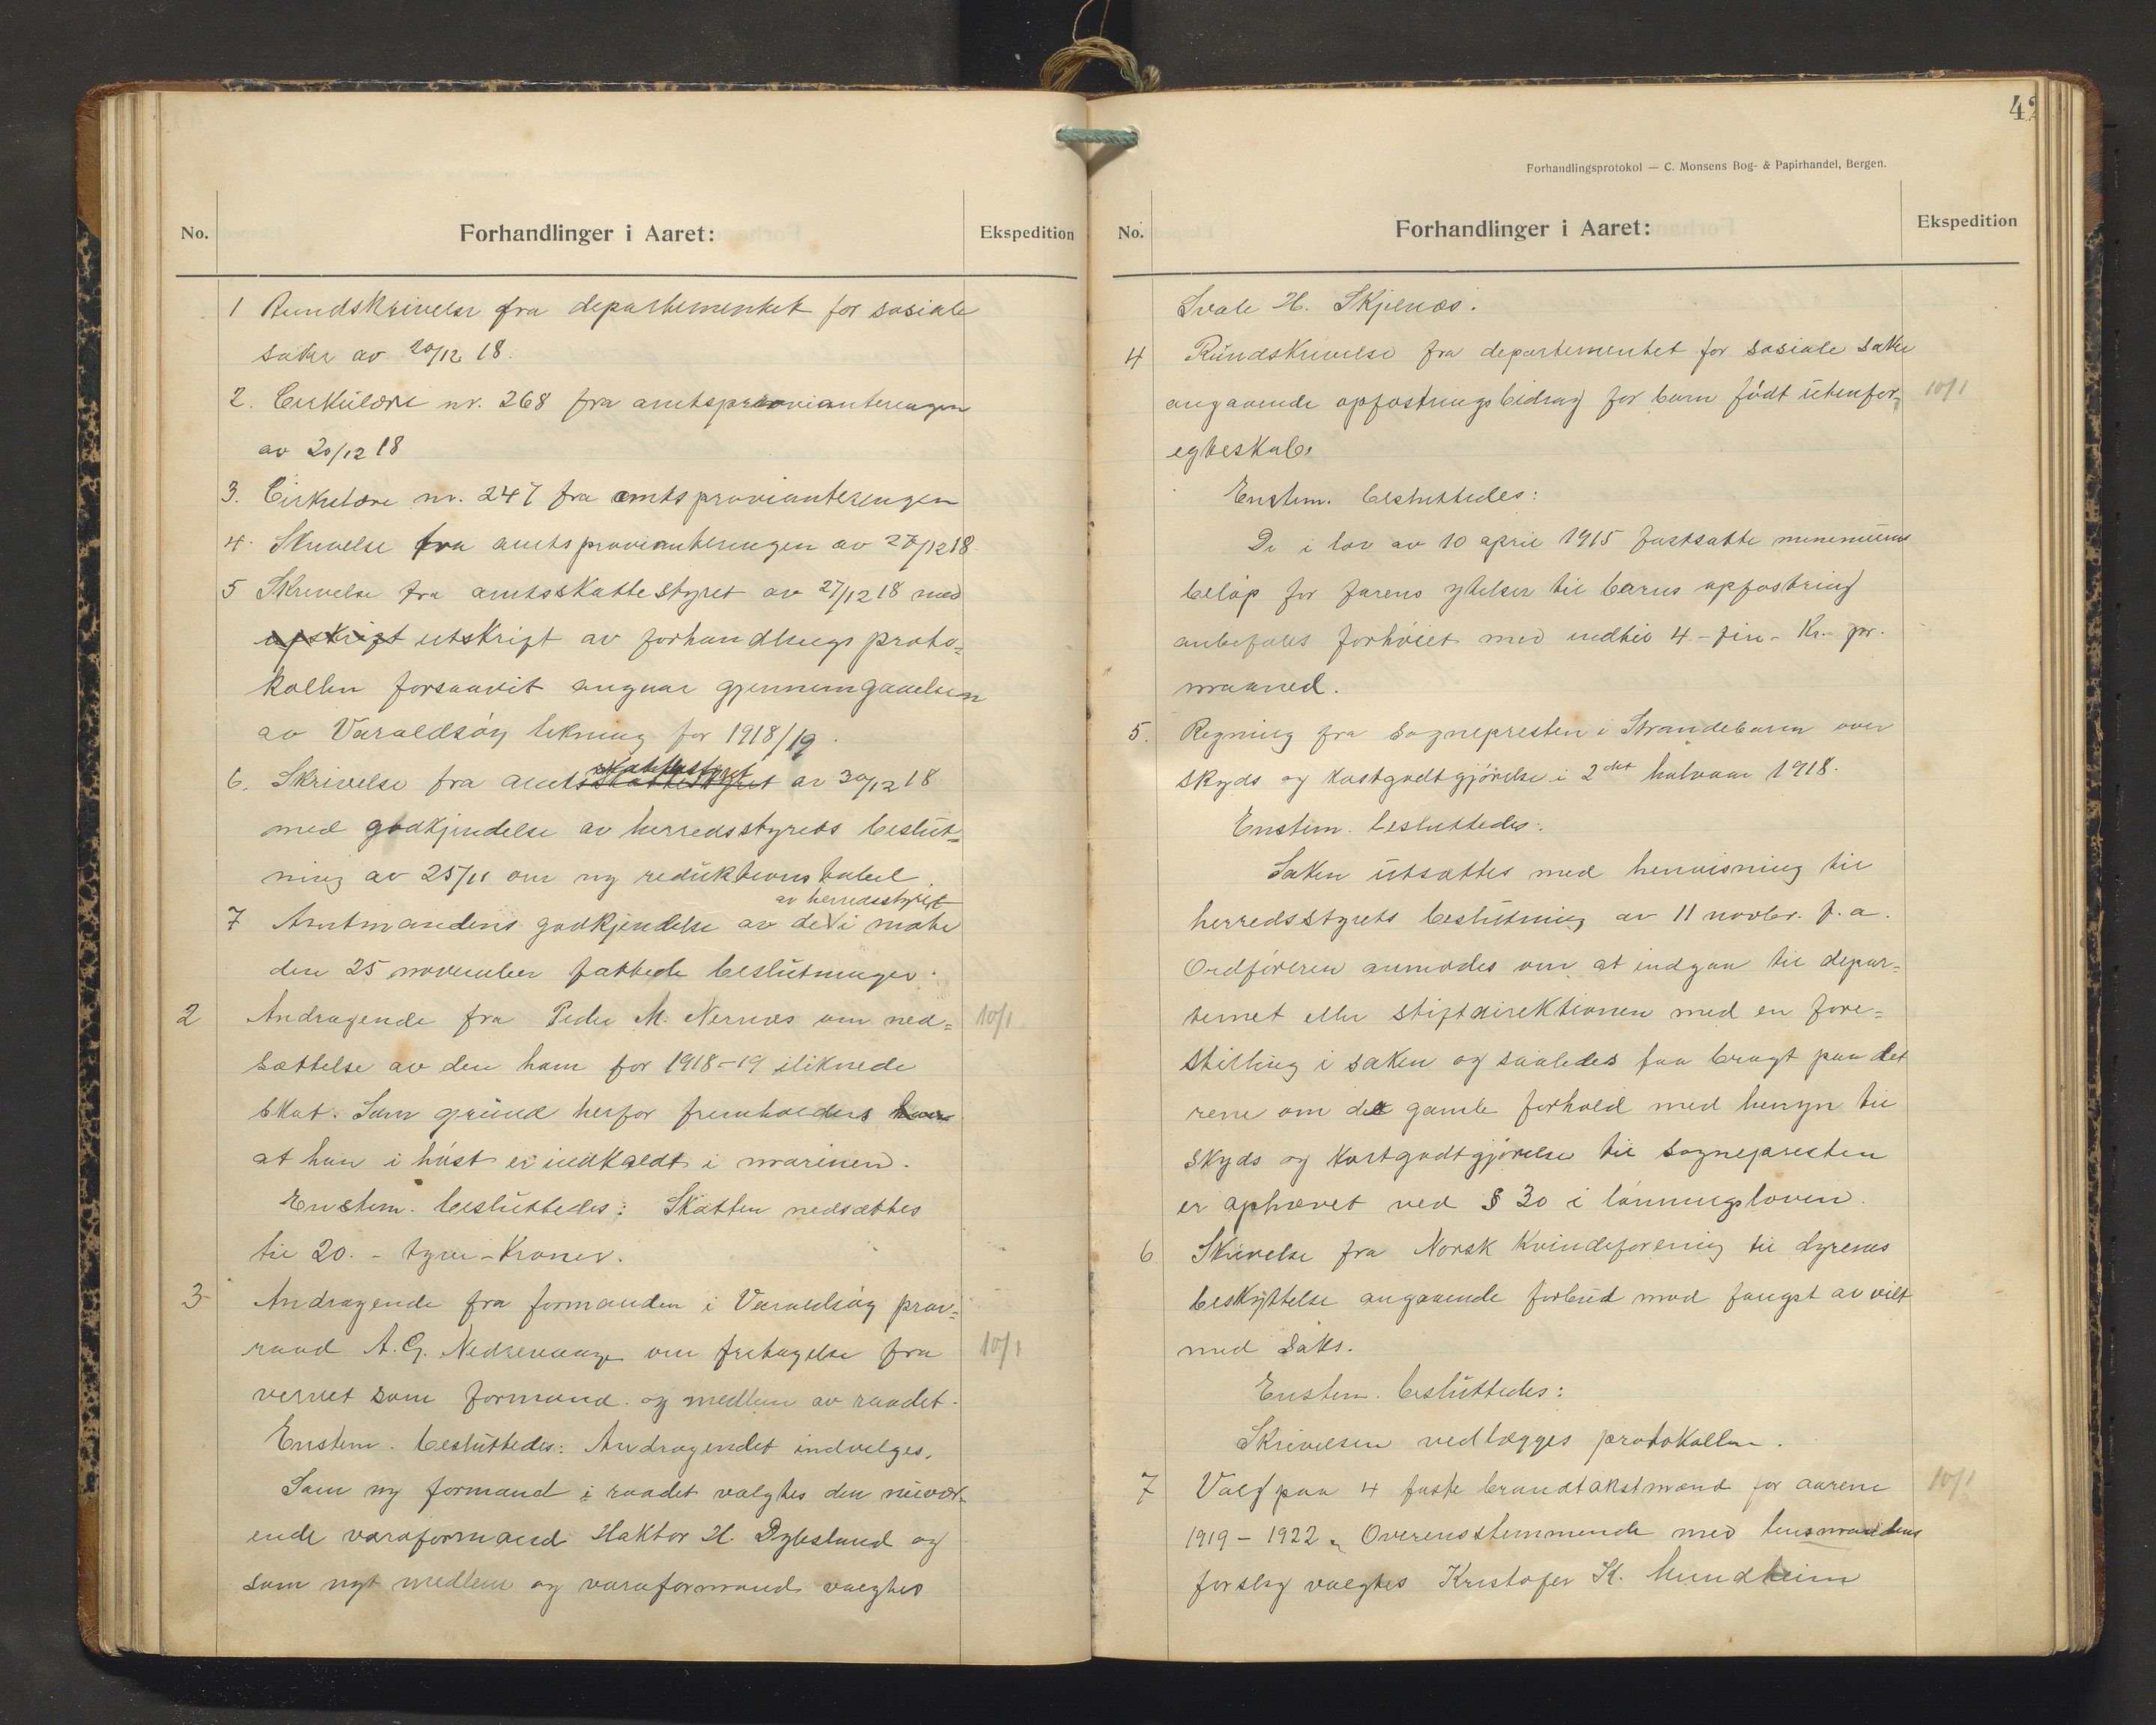 No.
Forhandlinger i Aaret:
Ekspedition
1 Rundskrivelse fra departementet for sosiale
saker av 20/12 18.
2. Cirkulære nr. 268 fra amtsprovianteringen
av 20/12 18
3. Cirkulære nr. 247 fra amtsprovianteringen
4. Skrivelse fra amtsprovianteringen av 27/12 18
5 Skrivelse fra amtsskattestyret av 27/12 18 med
upskrift utskrift av forhandlings proto-
kollen forsaavit angaar gjennemgaaelsen
av Varaldsøy likning for 1918/19.
skattestyret
6. Skrivelse fra amtsskattestyret av 30/12 18
med godkjendelse av herredsstyrets beslut-
ning av 25/11 om ny reduktionstabel
av herredsstyret
7 Amtmandens godkjendelse av de i møte
den 25 november fattede beslutninger.
2 Andragende fra Peder M. Nernes om ned- 10/1
sættelse av den ham for 1918-19 iliknede
skat. Som grund herfor fremholdes
at han i høst er indkaldt i marinen.
Enstem. besluttedes: Skatten nedsættes
til 20. - tyve - Kroner.
3 Andragende fra formanden i Varaldsøy prov-
raad A. G. Nedrevaage om fritagelse fra 10/1
vervet som formand og medlem av raadet.
Enstem. besluttedes: Andragendet indvilges.
Som ny formand i raadet valgtes den nuvær-
ende varaformand Haktor H. Dybsland og
som nyt medlem og varaformand valgtes
42
Forhandlingsprotokol — C. Monsens Bog- & Papirhandel, Bergen.
No.
Forhandlinger i Aaret:
Ekspedition
Svale H. Skjelnæs.
4 Rundskrivelse fra departementet for sosiale saker
angaaende opfostringsbidrag for barn født utenfor 10/1
egteskab.
Enstem. besluttedes:
De i lov av 10 april 1915 fastsatte minemums
beløp for farens ytelser til barns opfostring
anbefales forhøiet med indtil 4 - fire - Kr. pr.
maaned.
5. Regning fra sognepresten i Strandebarm over
skyds og kostgodtgjørelse i 2det halvaar 1918.
Enstem. besluttedes:
Saken utsættes med henvisning til
herredsstyrets beslutning av 11 novbr. f. a.
Ordføreren anmodes om at indgaa til depar-
temet eller stiftdirektionen med en fore-
stilling i saken og saaledes faa bragt paa det
rene om det gamle forhold med hensyn til
skyds og kostgodtgjørelse til sognepresten
er ophævet ved § 30 i lønningsloven.
6 Skrivelse fra Norsk Kvindeforening til dyrenes
beskyttelse angaaende forbud mod fangst av vilt
med saks.
Enstem. besluttedes:
Skrivelsen vedlægges protokollen.
7 Valg paa 4 faste brandtakstmænd for aarene 10/1
1919 - 1922. Overensstemmende med lensmandens
forslag valgtes Kristofer K. Mundheim